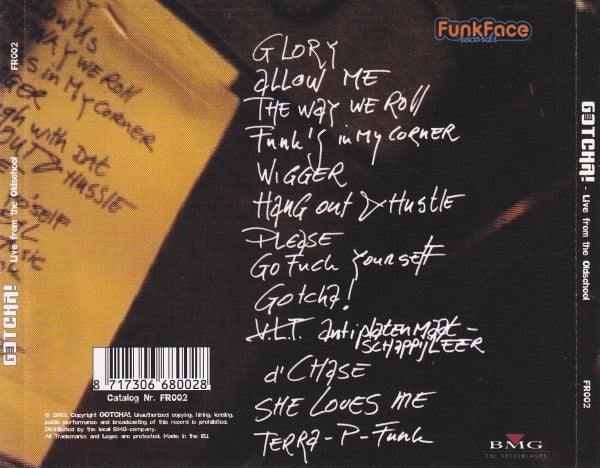 FunkFace
records
GLORY
allow ME
THE WAY WE Roll
Funk's in My CORNER
WIGGER
HANG out & HUSTLE
PLEASE
GO Fuck Yourself
Gotcha!
V.L.T. antiplatenmaat-
SCHAPPIJLEER
d'CHASE
SHE LOVES ME
TERRA-P-Funk
8 717306 680028
Catalog Nr. FR002
© 2003. Copyright GOTCHA!. Unauthorized copying, hiring, lending,
public performance and broadcasting of this record is prohibited.
Distributed by the local BMG-company.
All Trademarks and Logos are protected. Made in the EU.
BMG
THE NETHERLANDS
GOTCHA! - Live from the Oldschool
FR002
GOTCHA! - Live from the Oldschool
FR002
WAY WE Roll
in My CORNER
with DAT
HUSSLE